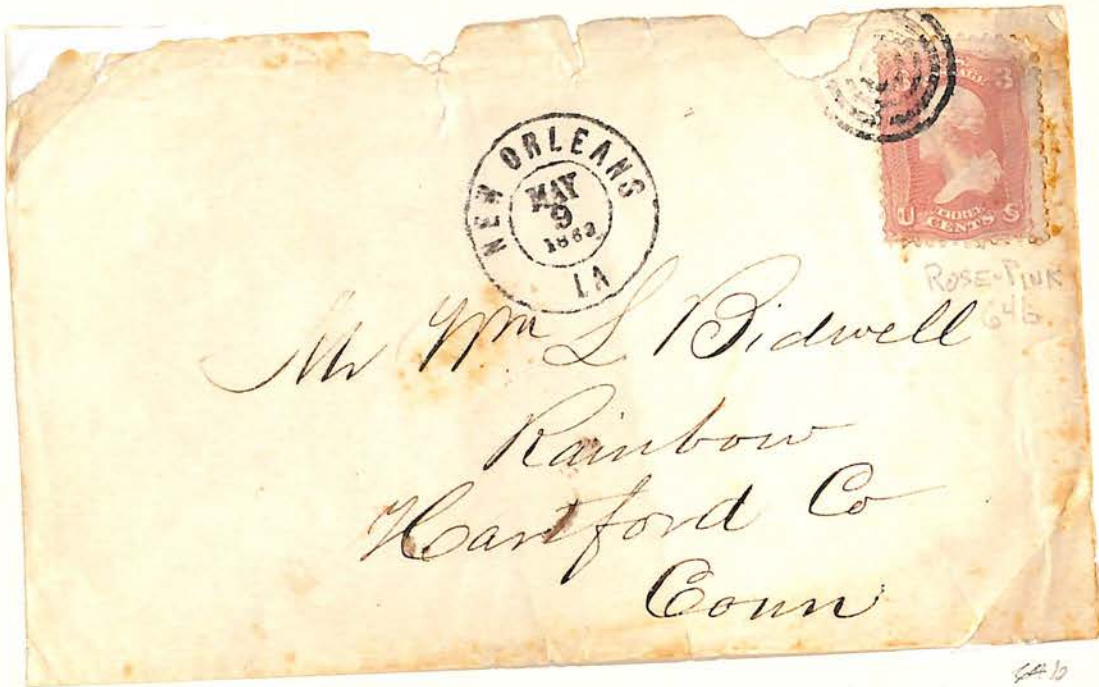 NEW ORLEANS
MAY
9
1863
LA
3
U THREE CENTS S
ROSE-PINK
64b
Mr Wm L Bidwell
Rainbow
Hartford Co
Conn